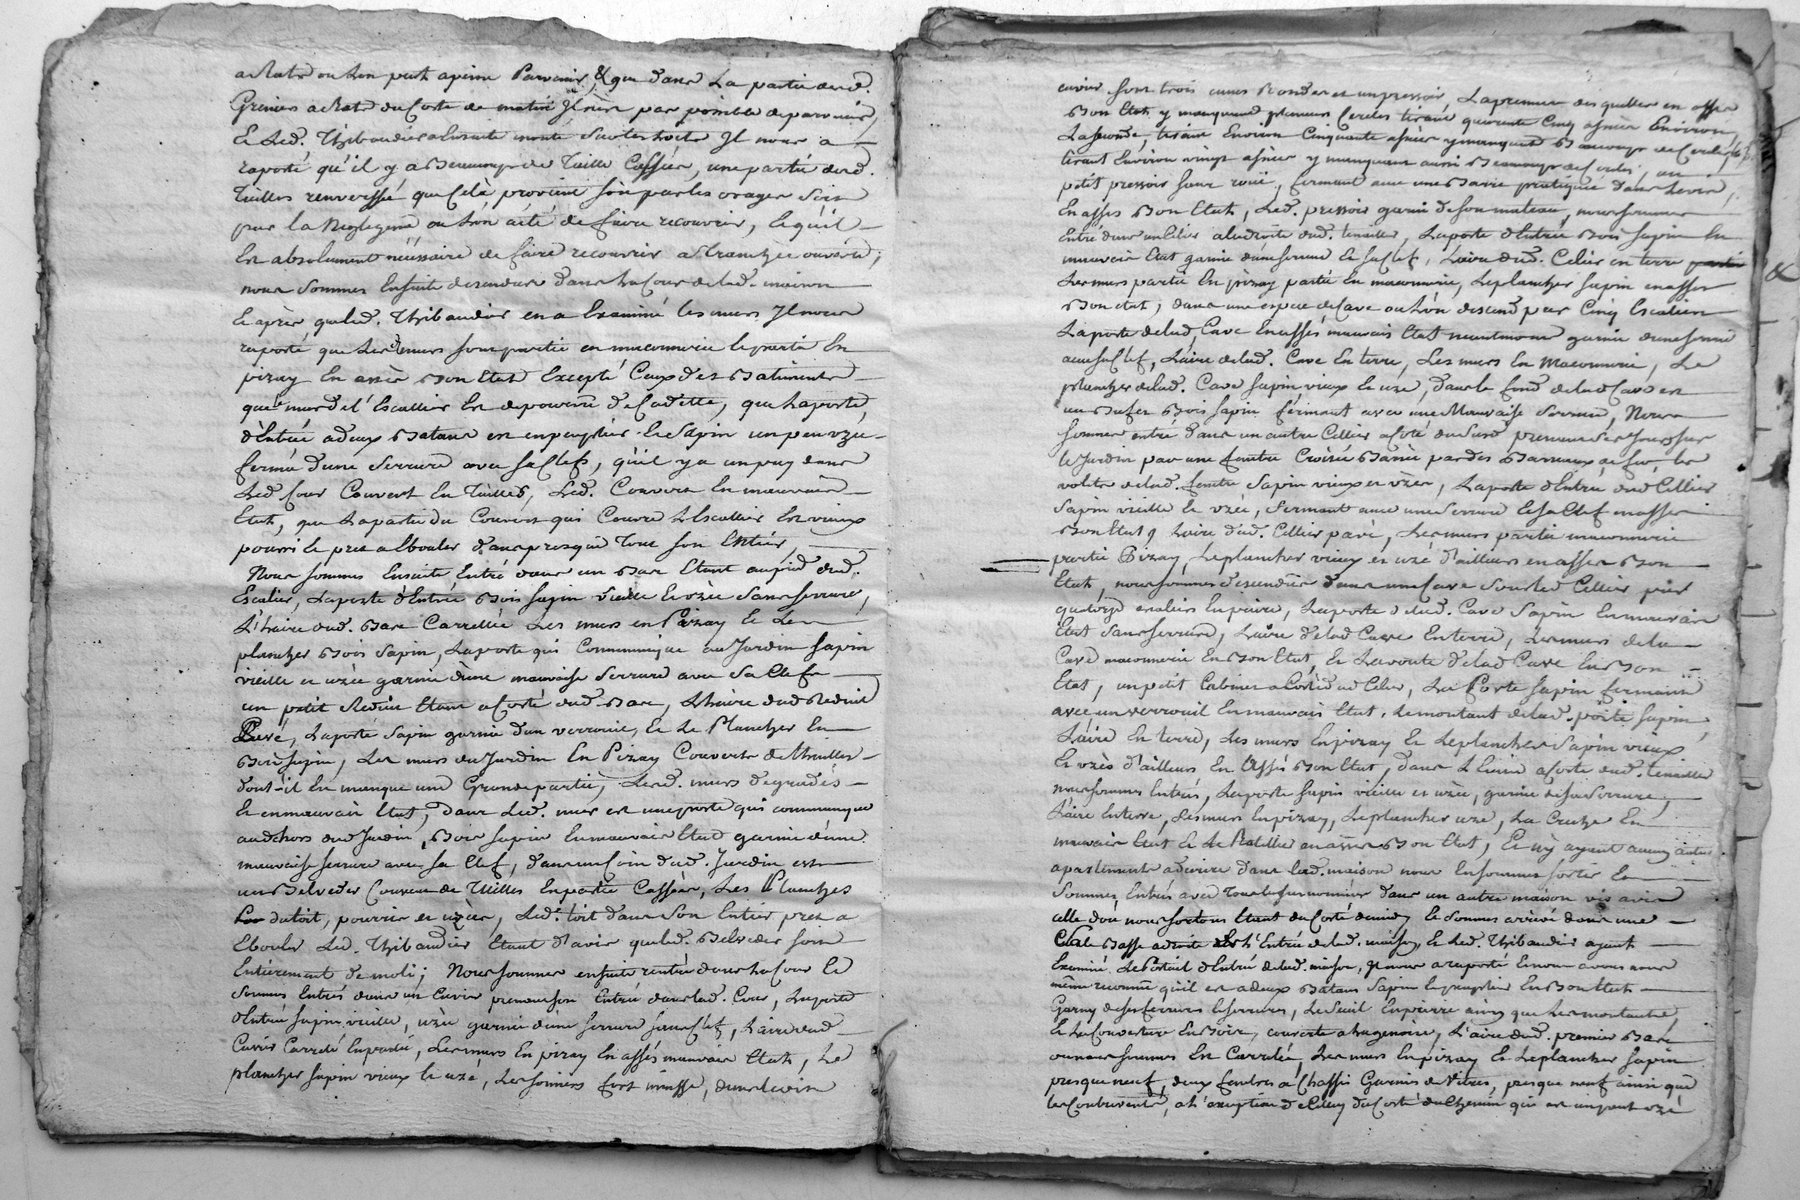 a Rats ou Lon peut apeine Parvenir, & que dans La partie dud.
Greniers a Rats du Coste de matin Il n'est pas possible de parvenir,
Le Led. Thibaudier a Ensuite monté sur les toits Il nous a
raporté qu'il y a Beaucoup de Tuille Cassées, une partie desd.
Tuilles renversée que Cela provient soit par les orages soit
par la Neglegence ou L'on a été de faire recouvrir, Ce qu'il
Est absolument nécéssaire de faire recouvrir a tranchée ouverte,
nous sommes Ensuite descendus dans La Cour de lad. maison
Et après que led. Thibaudier en a Examiné les murs Il nous
raporté que Les murs sont partie en maconnerie Et partie En
pizay En assés Bon Etat Excepté Ceux des Batiments
que mur de l'Escallier Est depourvu de Cadette, que La porte
d'Entrée a deux Batans est en peuplier Et Sapin un peu uzée
fermé d'une Serrure avec sa Clef, qu'il y a un puy dans
Lad. Cour Couvert En Tuilles, Led. Couvert En mauvais
Etat, que La partie du Couvert qui Couvre L'Escallier Est vieux
pourri Et prest a Ebouler dans presque Tout son Entier,
Nous sommes Ensuite Entré dans un Bas Etant au pied dud.
Escalier, La porte d'Entrée Bois Sapin vieille Et uzée Sans Serrure,
L'haire dud. Bas Carrellée Les murs en Pizay Et Le
plancher Bois Sapin, La porte qui Communique au Jardin Sapin
vieille et uzée garnie d'une mauvaise Serrure avec Sa Clef
un petit Reduit Etant a Coté dud. Bas, L'haire dud Reduit
Pavé, La porte Sapin garnie d'un verrouil, Et Le Plancher En
Bois Sapin, Les murs du Jardin En Pizay Couverts de Thuilles
dont il En manque une Grande partie, Lesd. murs degradés
Et en mauvais Etat, dans Led. mur est une porte qui communique
au dehors dud Jardin, Bois Sapin En mauvais Etat garnie d'une
mauvaise serrure avec sa Clef, dans un Coin dud. Jardin est
un Belveder Couvert de Tuilles En partie Cassées, Les Planches
du toit, pourries et uzées, Led. toit dans Son Entier prest a
Ebouler Led. Thibaudier Etant d'avis que led. Belveder soit
Entierement demoli; Nous sommes ensuite rentrés dans La Cour Et
Sommes Entrés dans un Cuvier prenant son Entrée dans lad. Cour, La porte
d'Entrée sapin vieille, uzée garnie d'une serrure sans Clef, L'aire dud
Cuvier Carrelé En partie, Les murs En pizay En assés mauvais Etats, Le
plancher sapin vieux Et uzé, Les sommiers fort
cuvier sont trois cuves Rondes et un pressoir, La premiere des quelles en assés
Bon Etat, y manquant plusieurs Cercles tirant quarante Cinq asnées Environ,
La seconde, tirant Environ Cinquante asnées y manquant Beaucoup de Cercles
tirant Environ vingt asnées y manquant aussi Beaucoup de Cercles, un
petit pressoir sans roüe, fermant avec une Barre pratiquée dans
En assés Bon Etat, Led. pressoir garni de son mateau, nous sommes
Entré dans un Celier a la droite dud. tenailler, La porte d'Entrée Bois Sapin En
mauvais Etat garnie d'une serrure Et sa Clef, L'aire dud. Celier en terre
Les murs partie En pizay partie En maconnerie, Le plancher sapin en assés
Bon etat, dans une espece de Cave ou L'on descend par Cinq Escaliers
La porte de lad. Cave En assés mauvais Etat neantmoins garnie d'une serrure
avec sa Clef, L'aire de lad. Cave En terre, Les murs En Maconnerie, Le
plancher de lad. Cave sapin vieux Et uzé, dans le fond de lad Cave est
un Bufet Bois sapin fermant avec une Mauvaise Serrure, Nous
sommes entré dans un autre Cellier a Coté du Sud prenant Ses Jours sur
le Jardin par une fenetre Croisée Barrée par des Barreaux de fer, les
volets de lad. fenetre Sapin vieux et uzées, La porte d'Entrée dud Cellier
Sapin vieille Et uzée, fermant avec une Serrure Et sa Clef en assés
Bon Etat, L'aire dud. Cellier pavé, Les murs partie maconnerie
partie Pizay, Le plancher vieux et uzé d'ailleurs en asses Bon
Etat, nous sommes descendus dans une Cave Sous led Cellier par
quatorze escaliers En pierre, La porte de lad. Cave Sapin En mauvais
Etat Sans serrure, L'aire de lad Cave En terre, Les murs de la
Cave maconnerie En Bon Etat, Et La voute de lad Cave En Bon
Etat, un petit Cabinet a Coté dud Celier, La Porte Sapin fermant
avec un verrouil En mauvais Etat, Le montant de lad. porte sapin,
L'aire En terre, Les murs En pizay Et Le plancher Sapin vieux
Et uzés d'ailleurs En Assés Bon Etat, dans L'Ecurie a Coste dud. tenailler
nous sommes Entrés, La porte sapin vieille et uzée, garnie de sa Serrure,
L'aire En terre, Les murs En pizay, Le plancher uzé, La Creche En
mauvais Etat Et Le Ratellier en assés Bon Etat, Et n'y ayant aucuns autres
apartements a decrire dans lad. maison nous En sommes sortis Et
Sommes, Entrés avec Tous les susnommés dans un autre maison vis a vis
celle d'ou nous sortons Etant du Coté de midy Et Sommes arrivé dans une
Salle Basse a droite de L'Entrée de lad. maison, Et Led. Thibaudier ayant
Examiné Le Portail d'Entrée de lad. maison, Il nous a raporté Et nous avons nous
même reconnu qu'il est a deux Batans Sapin Et peuplier En Bon Etat
Garny de ses ferrures Et serrures, Le Seuil En pierre ainsy que Les montants,
Et La Couverture En Bois, couverte a La genoise, L'aire dud. premier Bas
ou nous sommes Est Carrelée, Les murs En pizay Et Le plancher sapin
presque neuf, deux fenêtres a Chassis Garnis de Vitres, presque neuf ainsi que
les Contrevents, a L'exception de Celuy du Coste du Chemin qui est un peut uzé